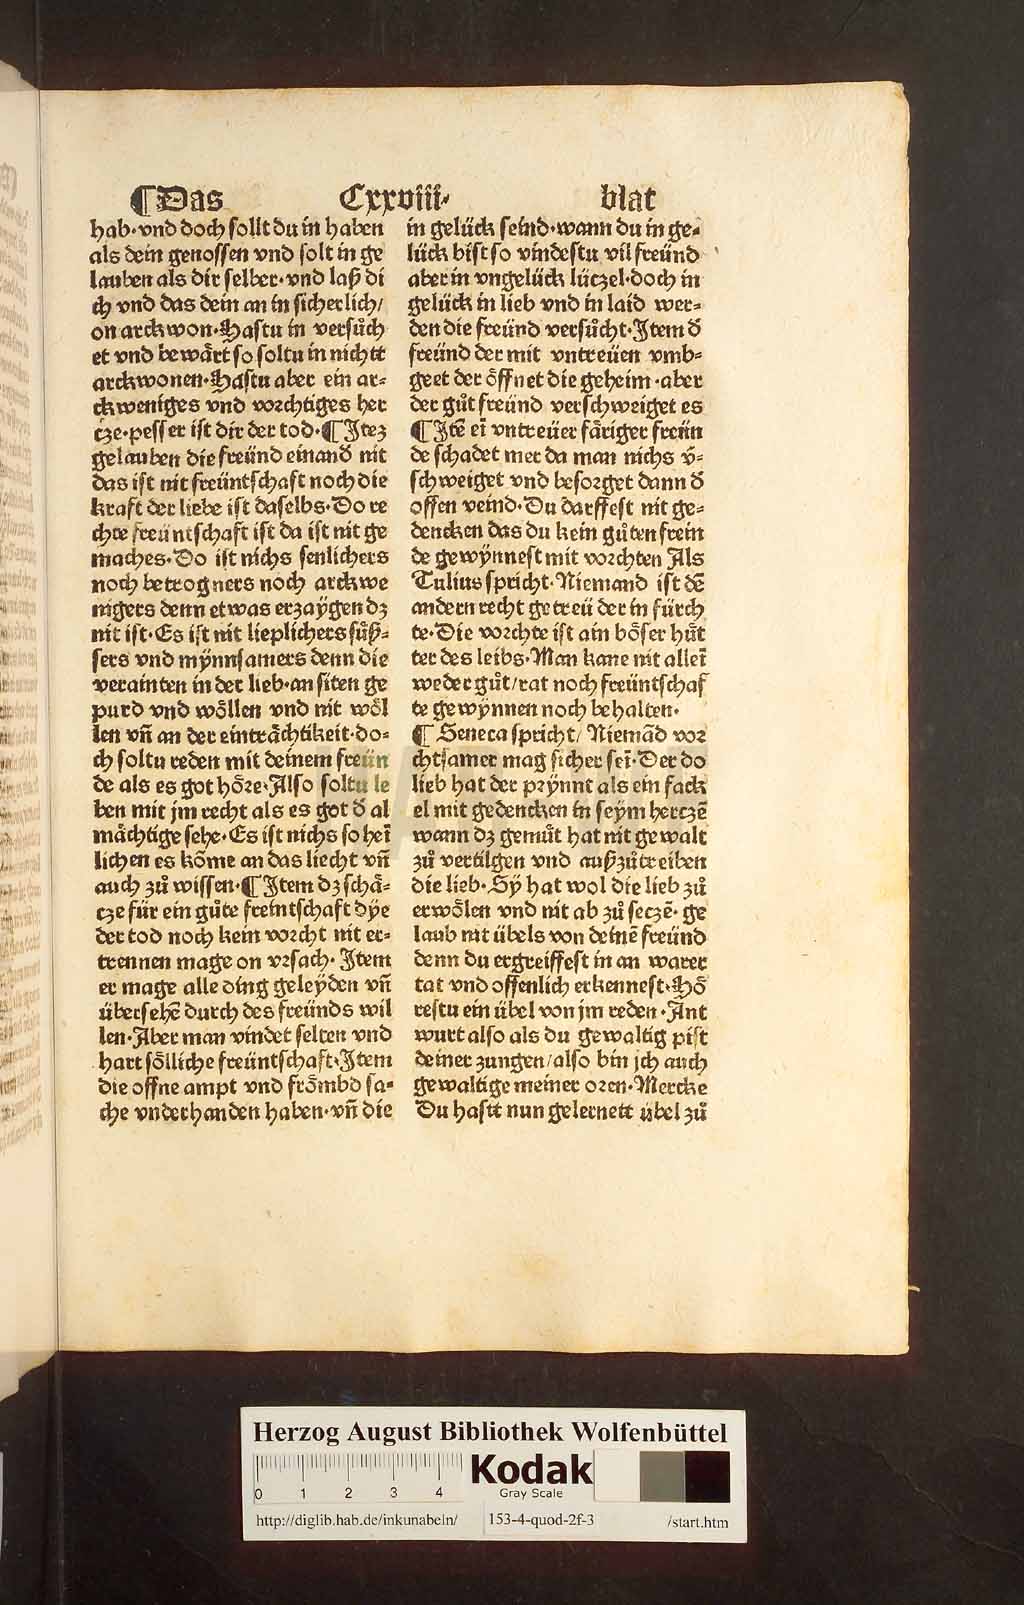 ¶Das Cxxviii· blat
hab·vnd doch sollt du in haben
als dein genossen vnd solt in ge
lauben als dir selber·vnd laß di
ch vnd das dein an in sicherlich/
on arckwon·Hastu in versůch
et vnd bewärt so soltu in nichtt
arckwonen·Hastu aber ein ar⸗
ckweniges vnd vorchtiges her
cze·pesser ist dir der tod·¶Itez
gelauben die freünd einanð nit
das ist nit freüntschaft noch die
kraft der liebe ist daselbs·Do re
chte freüntschaft ist da ist nit ge
maches·Do ist nichs senlichers
noch betrogners noch arckwe
nigers denn etwas erzaÿgen dz
nit ist·Es ist nit lieplichers sůß⸗
sers vnd mÿnnsamers denn die
verainten in der lieb·an siten ge
purd vnd wöllen vnd nit wöl
len vn̄ an der einträchtikeit·do⸗
ch soltu reden mit deinem freün
de als es got höre·Also soltu le
ben mit jm recht als es got ð al
mächtige sehe·Es ist nichs so hei̅
lichen es köme an das liecht vn̄
auch zů wissen·¶Item dz schä⸗
cze für ein gůte freintschaft dÿe
der tod noch kein vorcht nit er⸗
trennen mage on vrsach· Item
er mage alle ding geleÿden vn̄
übersehē durch des freünds wil
len·Aber man vindet selten vnd
hart sölliche freüntschaft·Item
die offne ampt vnd frömbd sa⸗
che vnderhanden haben·vn̄ die
in gelück seind·wann du in ge⸗
lück bist so vindestu vil freünd
aber in vngelück lüczel·doch in
gelück in lieb vnd in laid wer⸗
den die freünd versůcht·Item ð
freünd der mit vntreüen vmb⸗
geet der öffnet die geheim·aber
der gůt freünd verschweiget es
¶Itē ei̅ vntreüer färiger freün
de schadet mer da man nichs v̄⸗
schweiget vnd besorget dann ð
offen veind·Du darffest nit ge⸗
dencken das du kein gůten frein
de gewÿnnest mit vorchten Als
Tulius spricht·Niemand ist dē
andern recht getreü der in fürch
te·Die vorchte ist ain böser hůt
ter des leibs·Man kane nit allei̅
weder gůt/rat noch freüntschaf
te gewÿnnen noch behalten·
¶ Seneca spricht/ Niemād vor
chtsamer mag sicher sei̅·Der do
lieb hat der prÿnnt als ein fack
el mit gedencken in seÿm herczē
wann dz gemůt hat nit gewalt
zů vertilgen vnd außzůtreiben
die lieb·Sÿ hat wol die lieb zů
erwölen vnd nit ab zů seczē· ge
laub nit übels von deinē freünd
denn du ergreiffest in an warer
tat vnd offenlich erkennest·Hö
restu ein übel von jm reden·Ant
wurt also als du gewaltig pist
deiner zungen/also bin jch auch
gewaltige meiner oren·Mercke
Du hastt nun gelernett übel zů
Herzog August Bibliothek Wolfenbüttel
0 1 2 3 4
Kodak
Gray Scale
http://diglib.hab.de/inkunabeln/ 153-4-quod-2f-3 /start.htm